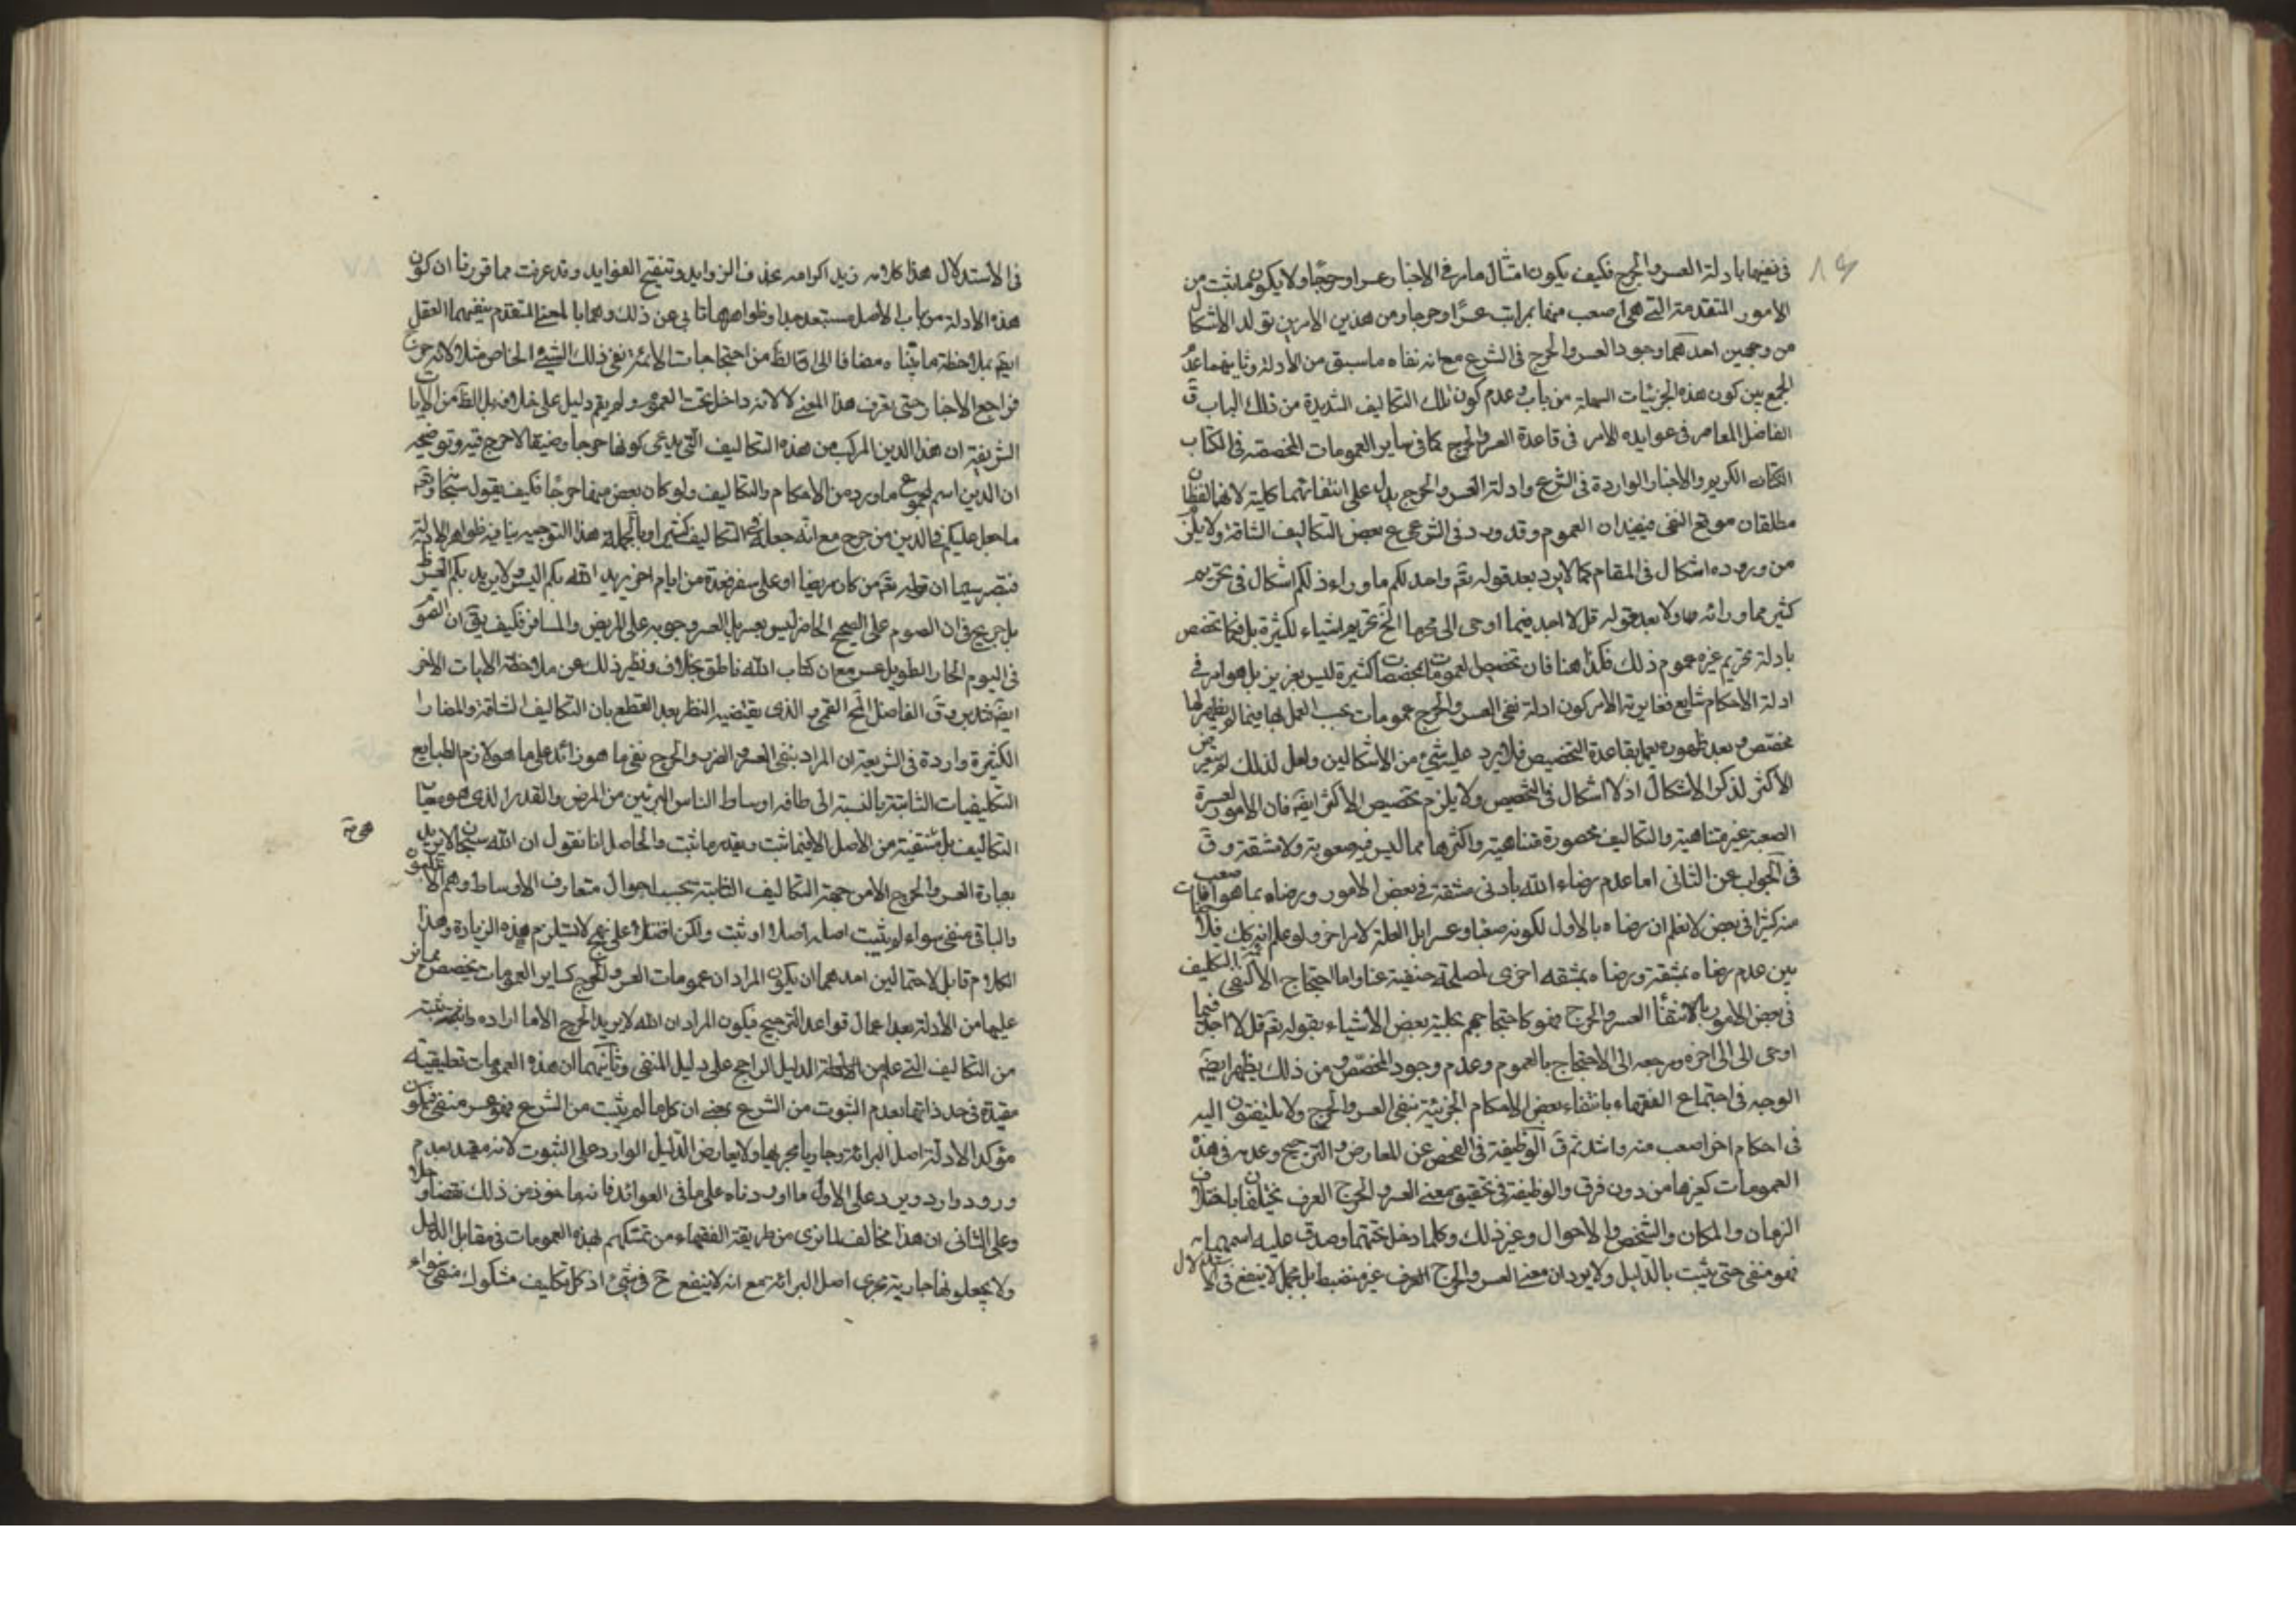 ٨٤
فى نفيها بادلة العسر والحرج فكيف يكون امثال ما مر فى الاخبار عسرا وحرجا ولا يكون ما ثبت من
الامور المتقدمة التى هى اصعب منها بمراتب عسرا وحرجا ومن هذين الامرين تولد الاشكال
من وجهين احدهما وجود العسر والحرج فى الشرع مع انه نفاه ما سبق من الأدلة وثانيهما عدم
الجمع بين كون هذه الجزئيات السهلة من باب وعدم كون تلك التكاليف الشديدة من ذلك الباب ق
الفاضل المعاصر فى عوايده الامر فى قاعدة العسر والحرج كما فى ساير العمومات المخصصة فى الكتاب
الكتاب الكريم والاخبار الواردة فى الشرع وادلة العسر والحرج يدل على انتفائهما كلية لانهما لفظان
مطلقان موقع النفى فيفيدان العموم وقد ورد فى الشرع بعض التكاليف الشاقة ولا يلزم
من وروده اشكال فى المقام كما لا يرد بعد قوله تعم واحل لكم ما وراء ذلكم اشكال فى تحريم
كثير مما وراءه ولا بعد قوله قل لا اجد فيما اوحى الى محرما الخ تحريم اشياء لكثيرة بل فيما تخصص
بادلة تحريم غيره عموم ذلك فكذا هنا فان تخصيص العمومات بمخصصات كثيرة ليس بعزيز بل هو امر فى
ادلة الاحكام شايع فغاية الامر كون ادلة نفى العسر والحرج عمومات يجب العمل بها فيما لم يظهر لها
مخصص وبعد ظهوره يعمل بقاعدة التخصيص فلا يرد عليه شىء من الاشكالين ولعل لذلك لم يتعرض
الأكثر لذكر الاشكال اذ لا اشكال فى التخصيص ولا يلزم تخصيص الاكثر ايضا فان الامور العسرة
الصعبة غير متناهية والتكاليف محصورة متناهية واكثرها مما ليس فيه صعوبة ولا مشقة وق
فى الجواب عن الثانى اما عدم رضاء الله بادنى مشقة فى بعض الامور ورضاه بما هو اصعب
منه كثيرا فى بعض لا نعلم ان رضاه بالاول لكونه صعبا وعسرا بل لعلة لامر اخر ولو علم انه كك فلا منافات
بين عدم رضاه بمشقة ورضاه بمشقه اخرى لمصلحة خفية عنا واما احتجاج الائمة التكليف
فى بعض الامور بالانتفاء العسر والحرج فهو كاحتجاجهم بحلية بعض الأشياء بقوله تعم قل لا اجد فيما
اوحى الى الى اخره ومرجعه الى الاحتجاج بالعموم وعدم وجود المخصص ومن ذلك يظهر ايضا
الوجه فى احتجاج الفقهاء بانتفاء بعض الاحكام الجزئية بنفى العسر والحرج ولا يلتفتون اليه
فى احكام اخر اصعب منه واشد ثم ق الوظيفة فى الفحص عن المعارض والترجيح وعدمه فى هذه
العمومات كغيرها من دون فرق والوظيفة فى تحقيق معنى العسر والحرج العرف يختلفان باختلاف
الزمان والمكان والشخص والاحوال وغير ذلك وكلما دخل تحتهما وصدق عليه اسمهما
فهو منفى حتى يثبت بالدليل ولا يرد ان معنى العسر والحرج العرف غير منضبط بل مجمل لا ينفع فى
فى الاستدلال هذا كلامه زيد اكرامه بحذف الزوايد وتنقيح الفوايد وقد عرفت مما قررنا ان كون
هذه الادلة من باب الأصل مستبعد جدا وظواهرها تابى عن ذلك وهما بالمعنى المتقدم ينفيهما العقل
ايضا بملاحظة ما بيناه مضافا الى ان الظ من احتجاجات الائمة نفى ذلك الشىء الخاص مثلا لانه حرج
فراجع الاخبار حتى تعرف هذا المعنى لا لانه داخل تحت العموم ولم يقم دليل على خلافه بل الظ من الايات
الشريفة ان هذا الدين المركب من هذه التكاليف التى يدعى كونها حرجا وضيقا لا حرج فيه وتوضيحه
ان الدين اسم لمجموع ما ورد من الأحكام والتكاليف ولو كان بعض منها حرجا فكيف يقول سبحانه وتعم
ما جعل عليكم فى الدين من حرج مع انه جعله فى التكاليف كثيرا وبالجملة هذا التوجيه ينافيه ظواهر الادلة
فتبصر سيما ان قوله تعم من كان مريضا او على سفر فعدة من ايام اخر يريد الله بكم اليسر ولا يريد بكم العسر ظ
بل صريح فى ان الصوم على الصحيح الحاضر ليس بعسر بل العسر وجوبه على المريض والمسافر فكيف يق ان الصوم
فى اليوم الحار الطويل عسر مع ان كتاب الله ناطق بخلافه ويظهر ذلك عن ملاحظة الايات الاخر
ايضا فتدبر وق الفاضل المحقق القمى ره الذى يقتضيه النظر بعد القطع بان التكاليف الشاقة والمضار
الكثيرة واردة فى الشريعة ان المراد بنفى العسر والضرر والحرج نفى ما هو زائد على ما هو لازم لطبايع
التكليفات الثابتة بالنسبة الى طاقة اوساط الناس البرئين من المرض والقدر الذى هو معيار
التكاليف بل منتفية من الاصل الا فيما ثبت وبقدر ما ثبت والحاصل انا نقول ان الله سبحانه لا يريد
بعباده العسر والحرج الا من جهة التكاليف الثابتة بحسب احوال متعارف الاوساط وهم الاغلبون
والباقى منفى سواء لم يثبت اصله اصلا او ثبت ولكن على نهج لا يستلزم هذه الزيادة وهذا
الكلام قابل لاحتمالين احدهما ان يكون المراد ان عمومات العسر والحرج كساير العمومات يخصص
عليها من الأدلة بعد اعمال قواعد الترجيح فيكون المراد ان الله لا يريد الحرج الا ما اراده
من التكاليف التى علم من الادلة الدليل الراجح على دليل المنفى وثانيهما ان هذه العمومات تعليقية
مقيدة فى حد ذاتها بعدم الثبوت من الشرع بمعنى ان كل ما لم يثبت من الشرع فهو عسر منفى فيكون
مؤكد الادلة اصل البرائة وجاريا مجريها ولا يعارض الدليل الوارد على الثبوت لانه مقيد بعدم
ورود وارد ويرد على الاول ما اوردناه على ما فى العوائد فانه ماخوذ من ذلك نقضا وحلا
وعلى الثانى ان هذا مخالف لما نرى من طريقة الفقهاء من تمسكهم بهذه العمومات فى مقابل الدليل
ولا يجعلونها جارية مجرى اصل البرائة مع انه لا ينفع ح فى شىء اذ كل تكليف مشكوك منفى سواء